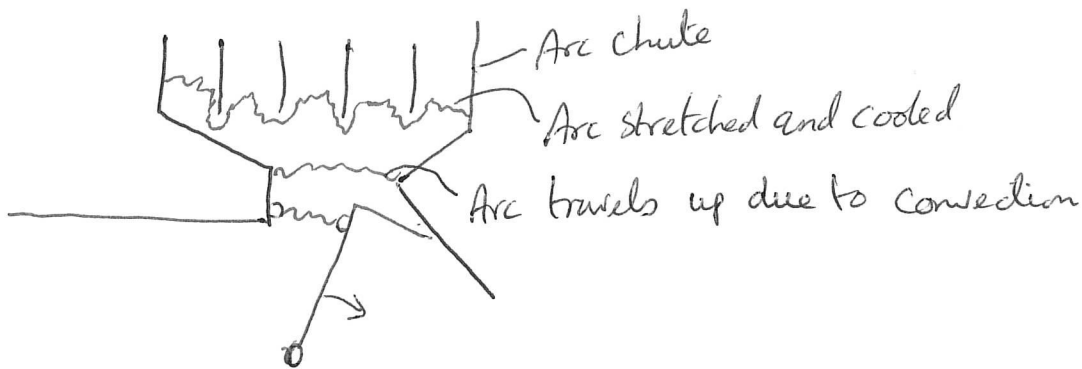 Arc chute
Arc stretched and cooled
Arc travels up due to convection